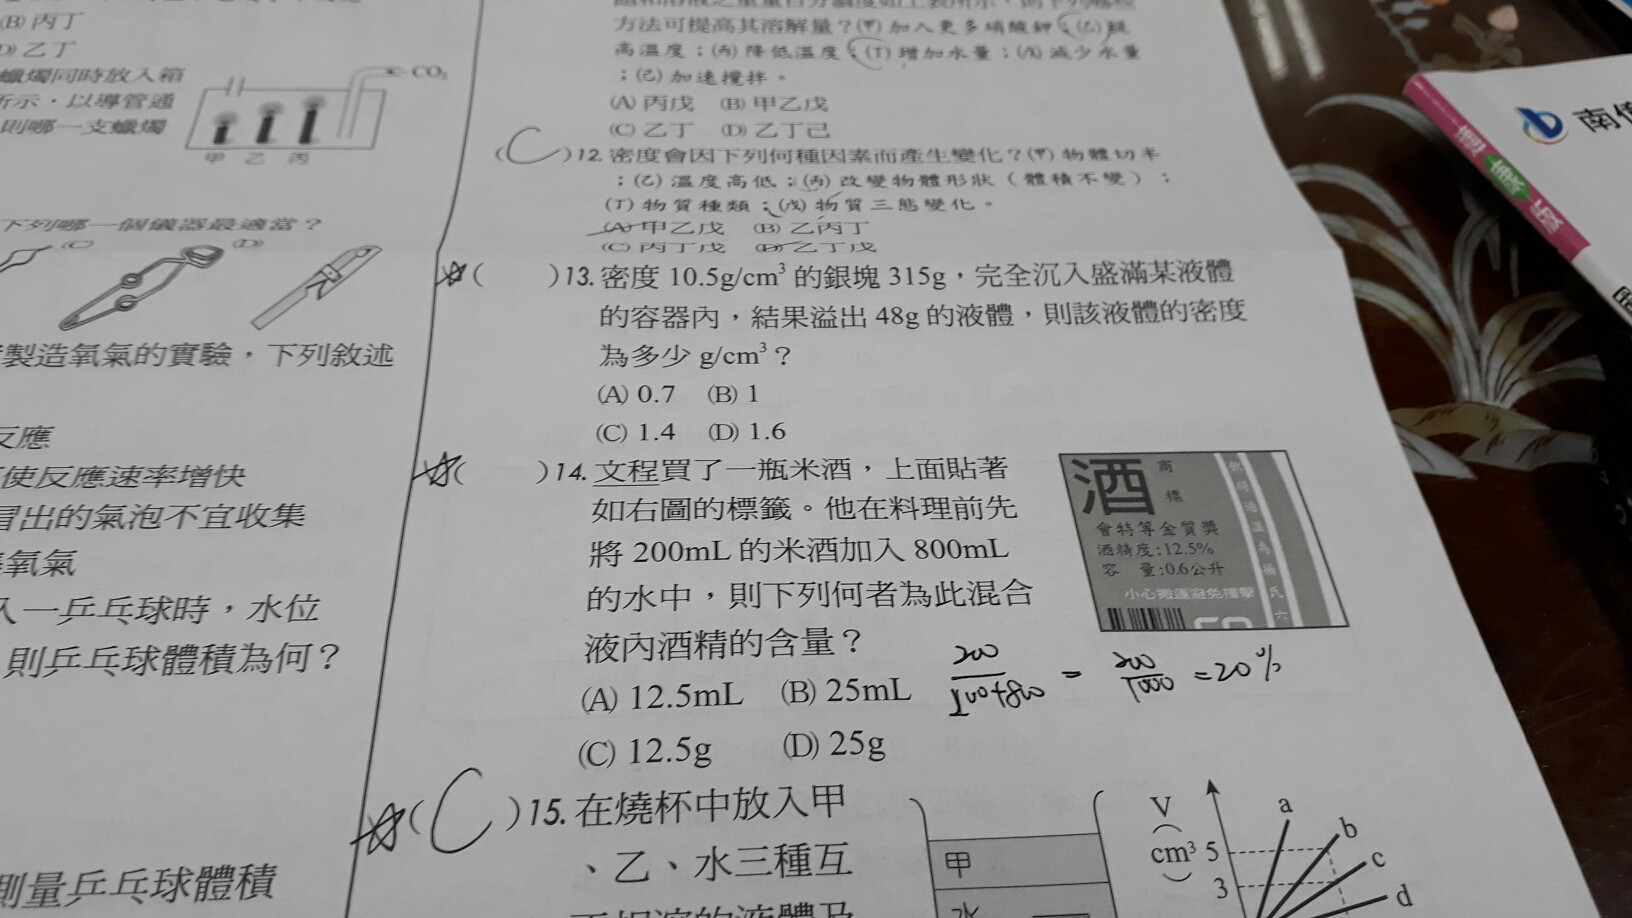 (B) 丙丁
(D) 乙丁
蠟燭同時放入箱
所示，以導管通
則哪一支蠟燭
CO₂
甲 乙 丙
下列哪一個儀器最適當？
(C) (D)
製造氧氣的實驗，下列敘述
反應
使反應速率增快
冒出的氣泡不宜收集
氧氣
入一乒乓球時，水位
則乒乓球體積為何？
測量乒乓球體積
方法可提高其溶解量？(甲)加入更多硝酸鉀；(乙)提
高溫度；(丙)降低溫度；(丁)增加水量；(戊)減少水量
；(己)加速攪拌。
(A) 丙戊 (B) 甲乙戊
(C) 乙丁 (D) 乙丁己
(C)12. 密度會因下列何種因素而產生變化？(甲)物體切半
；(乙)溫度高低；(丙)改變物體形狀（體積不變）；
(丁)物質種類；(戊)物質三態變化。
(A) 甲乙戊 (B) 乙丙丁
(C) 丙丁戊 (D) 乙丁戊
( )13. 密度 10.5g/cm³ 的銀塊 315g，完全沉入盛滿某液體
的容器內，結果溢出 48g 的液體，則該液體的密度
為多少 g/cm³？
(A) 0.7 (B) 1
(C) 1.4 (D) 1.6
( )14. 文程買了一瓶米酒，上面貼著
如右圖的標籤。他在料理前先
將 200mL 的米酒加入 800mL
的水中，則下列何者為此混合
液內酒精的含量？
(A) 12.5mL (B) 25mL
(C) 12.5g (D) 25g
酒 商標
會特等金質獎
酒精度：12.5%
容 量：0.6公升
小心搬運避免撞擊
200/200+800 = 200/1000 = 20%
(C)15. 在燒杯中放入甲
、乙、水三種互
甲
水
V
(cm³)
5
3
a
b
c
d
南